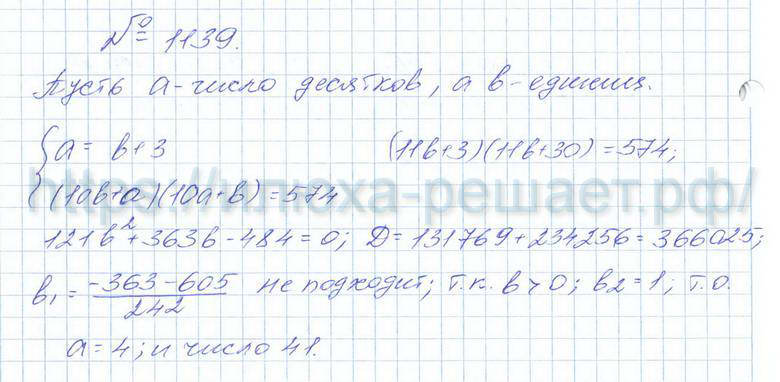 № 1139.
Пусть a-число десятков, а b-единиц.
{a = b+3 (11b+3)(11b+30)=574;
(10b+a)(10a+b)=574
https://илюха-решает.рф/
121b²+363b-484=0; D=131769+234256=366025;
b₁ = (-363-605)/242 не подходит; т.к. b>0; b₂=1; т.о.
a=4; и число 41.